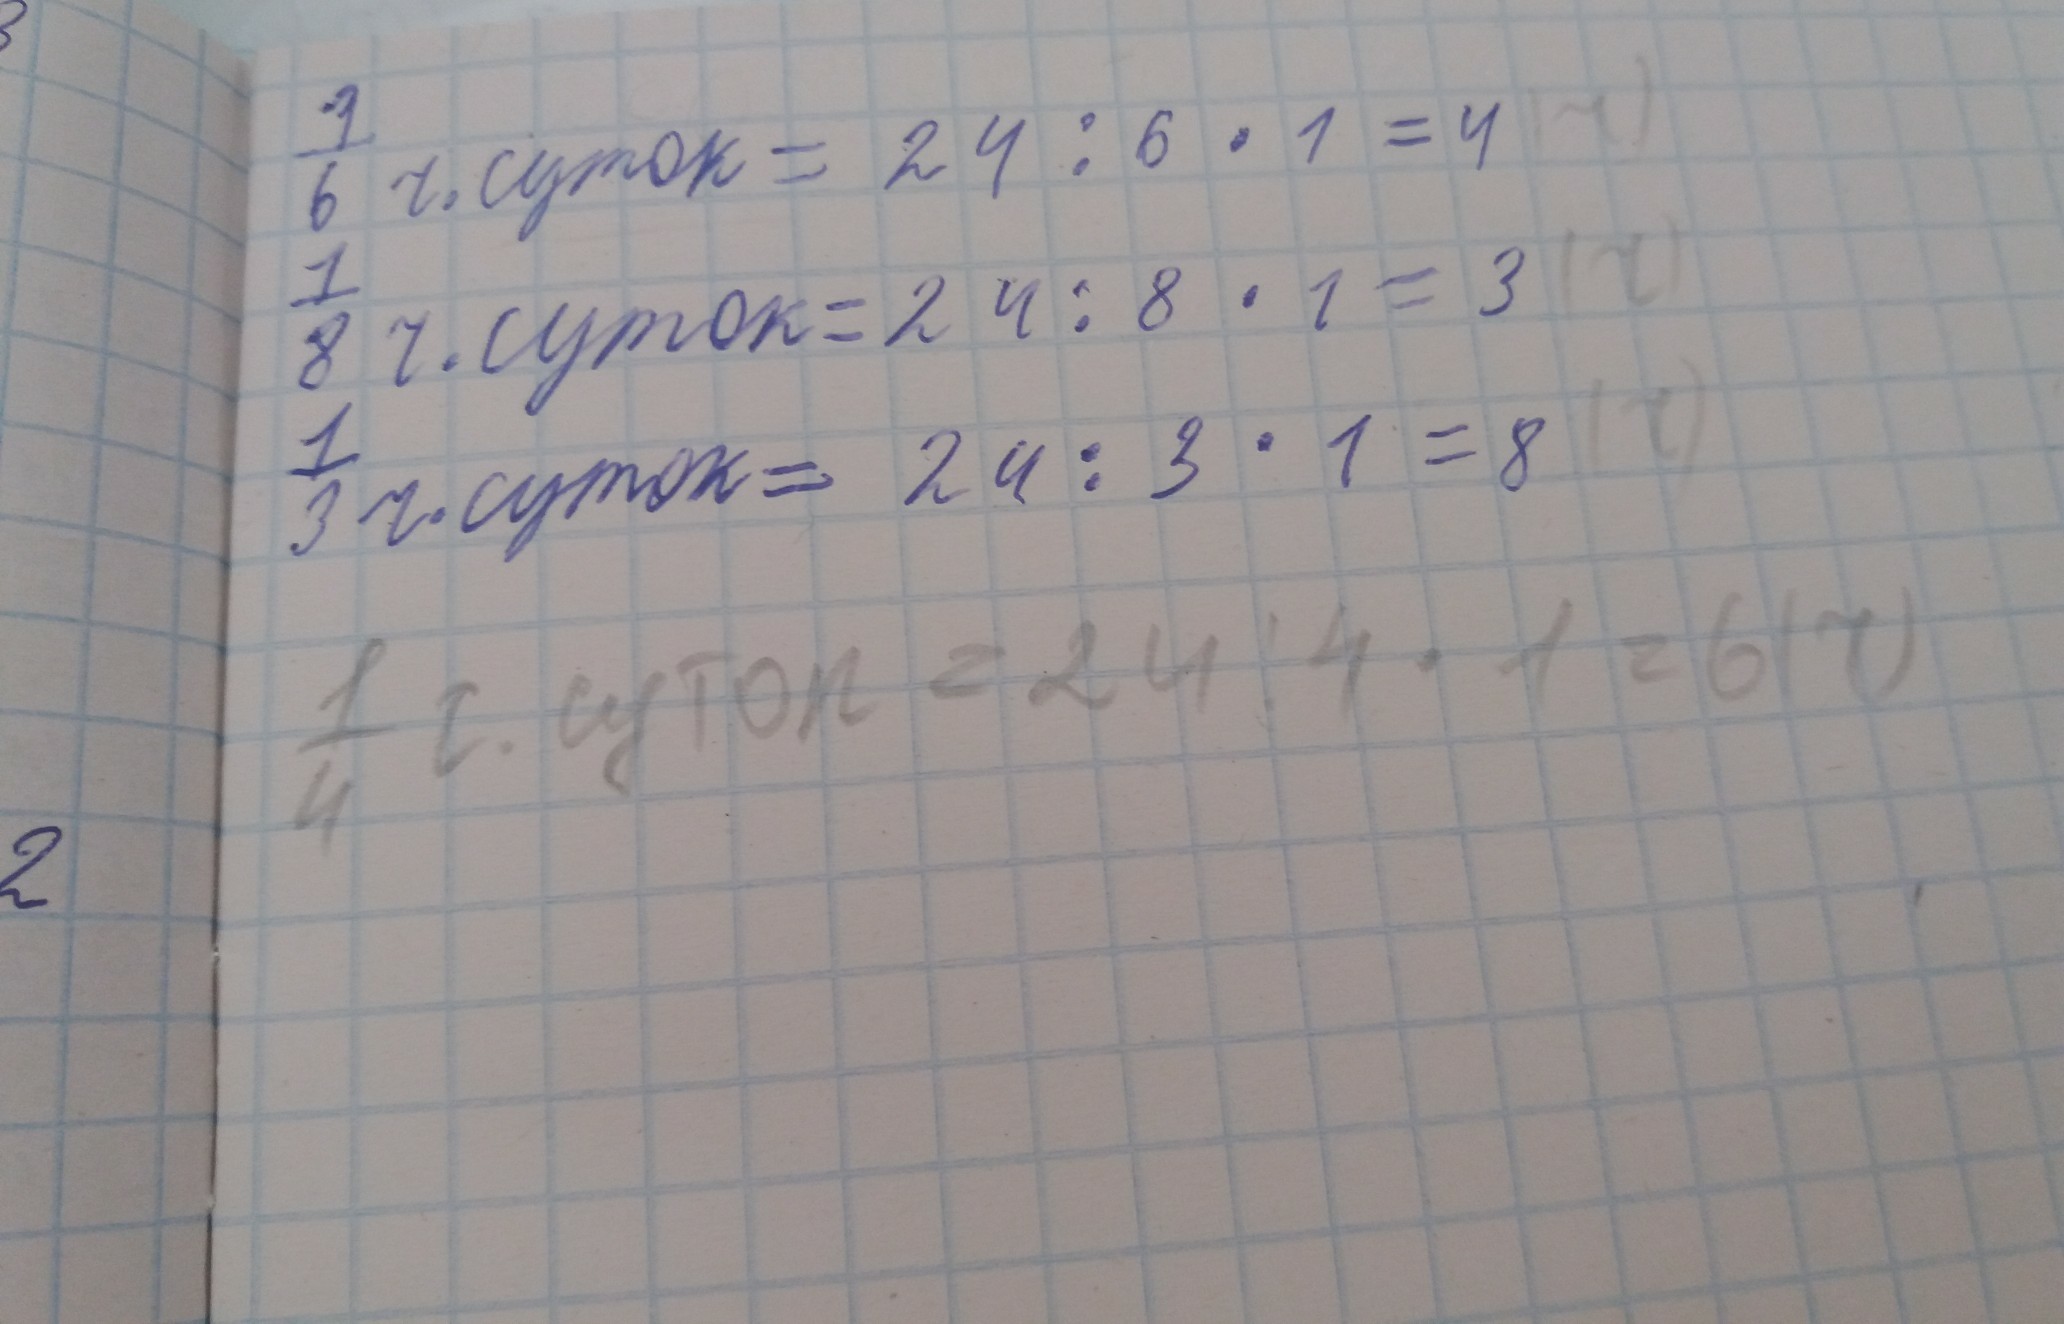 3
1/6 ч. суток = 24 : 6 · 1 = 4 (ч)
1/8 ч. суток = 24 : 8 · 1 = 3 (ч)
1/3 ч. суток = 24 : 3 · 1 = 8 (ч)
1/4 ч. суток = 24 : 4 · 1 = 6 (ч)
2